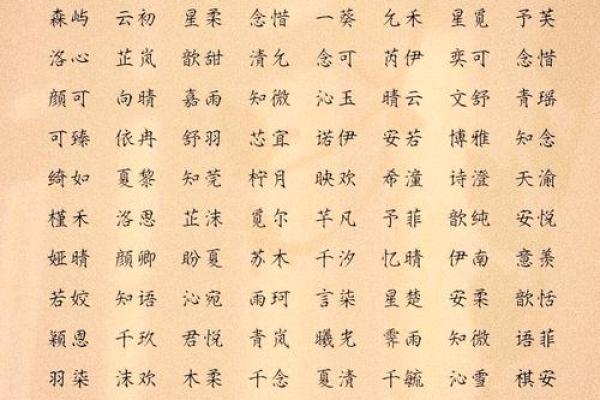 森屿 云初 星柔 念惜 一葵 乞禾 星觅 予芙
洛心 芷岚 歆甜 清允 念可 芮伊 奕可 念惜
颜可 向晴 嘉雨 知微 沁玉 晴云 文舒 青瑶
可臻 依冉 舒羽 芯宜 诺伊 安若 博雅 知念
绮如 夏黎 知莞 柠月 映欢 希潼 诗澄 天渝
槿禾 洛思 芷沫 觅尔 芊凡 予菲 歆纯 安悦
娅晴 颜卿 盼夏 苏木 千汐 忆晴 伊南 意羡
若姣 知语 沁宛 雨珂 言柒 星楚 安柔 歆恬
颖恩 千玖 君悦 青岚 曦光 霁雨 知微 语菲
羽柒 沫欢 木柔 千念 夏清 千毓 沁雪 祺安